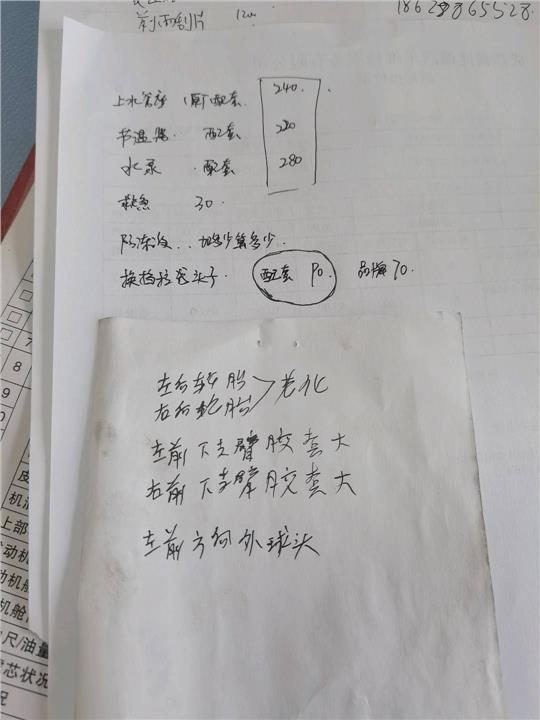 前雨刮片 120
18628865528.
上水管座 原厂配套. 240.
节温器. 配套 220
水泵 . 配套 280
救急 30.
防冻液. . 加多少算多少.
换档拉线头子. 配套 90. 品牌 70.
左后轮胎
右后轮胎 > 老化
左前下支臂胶套大
右前下支臂胶套大
左前方向外球头
8
9
机
上部
动机
动机舱
机舱
尺/油量
芯状况
况